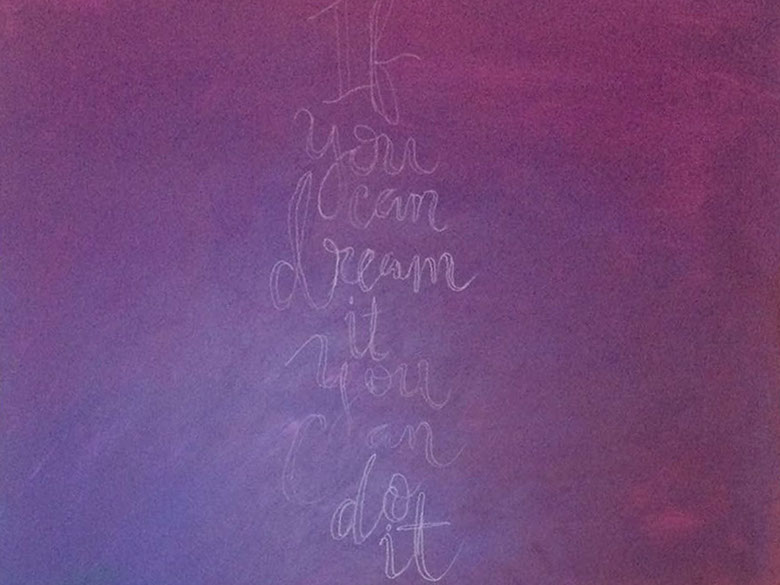 If
you
can
dream
it
you
can
do
it